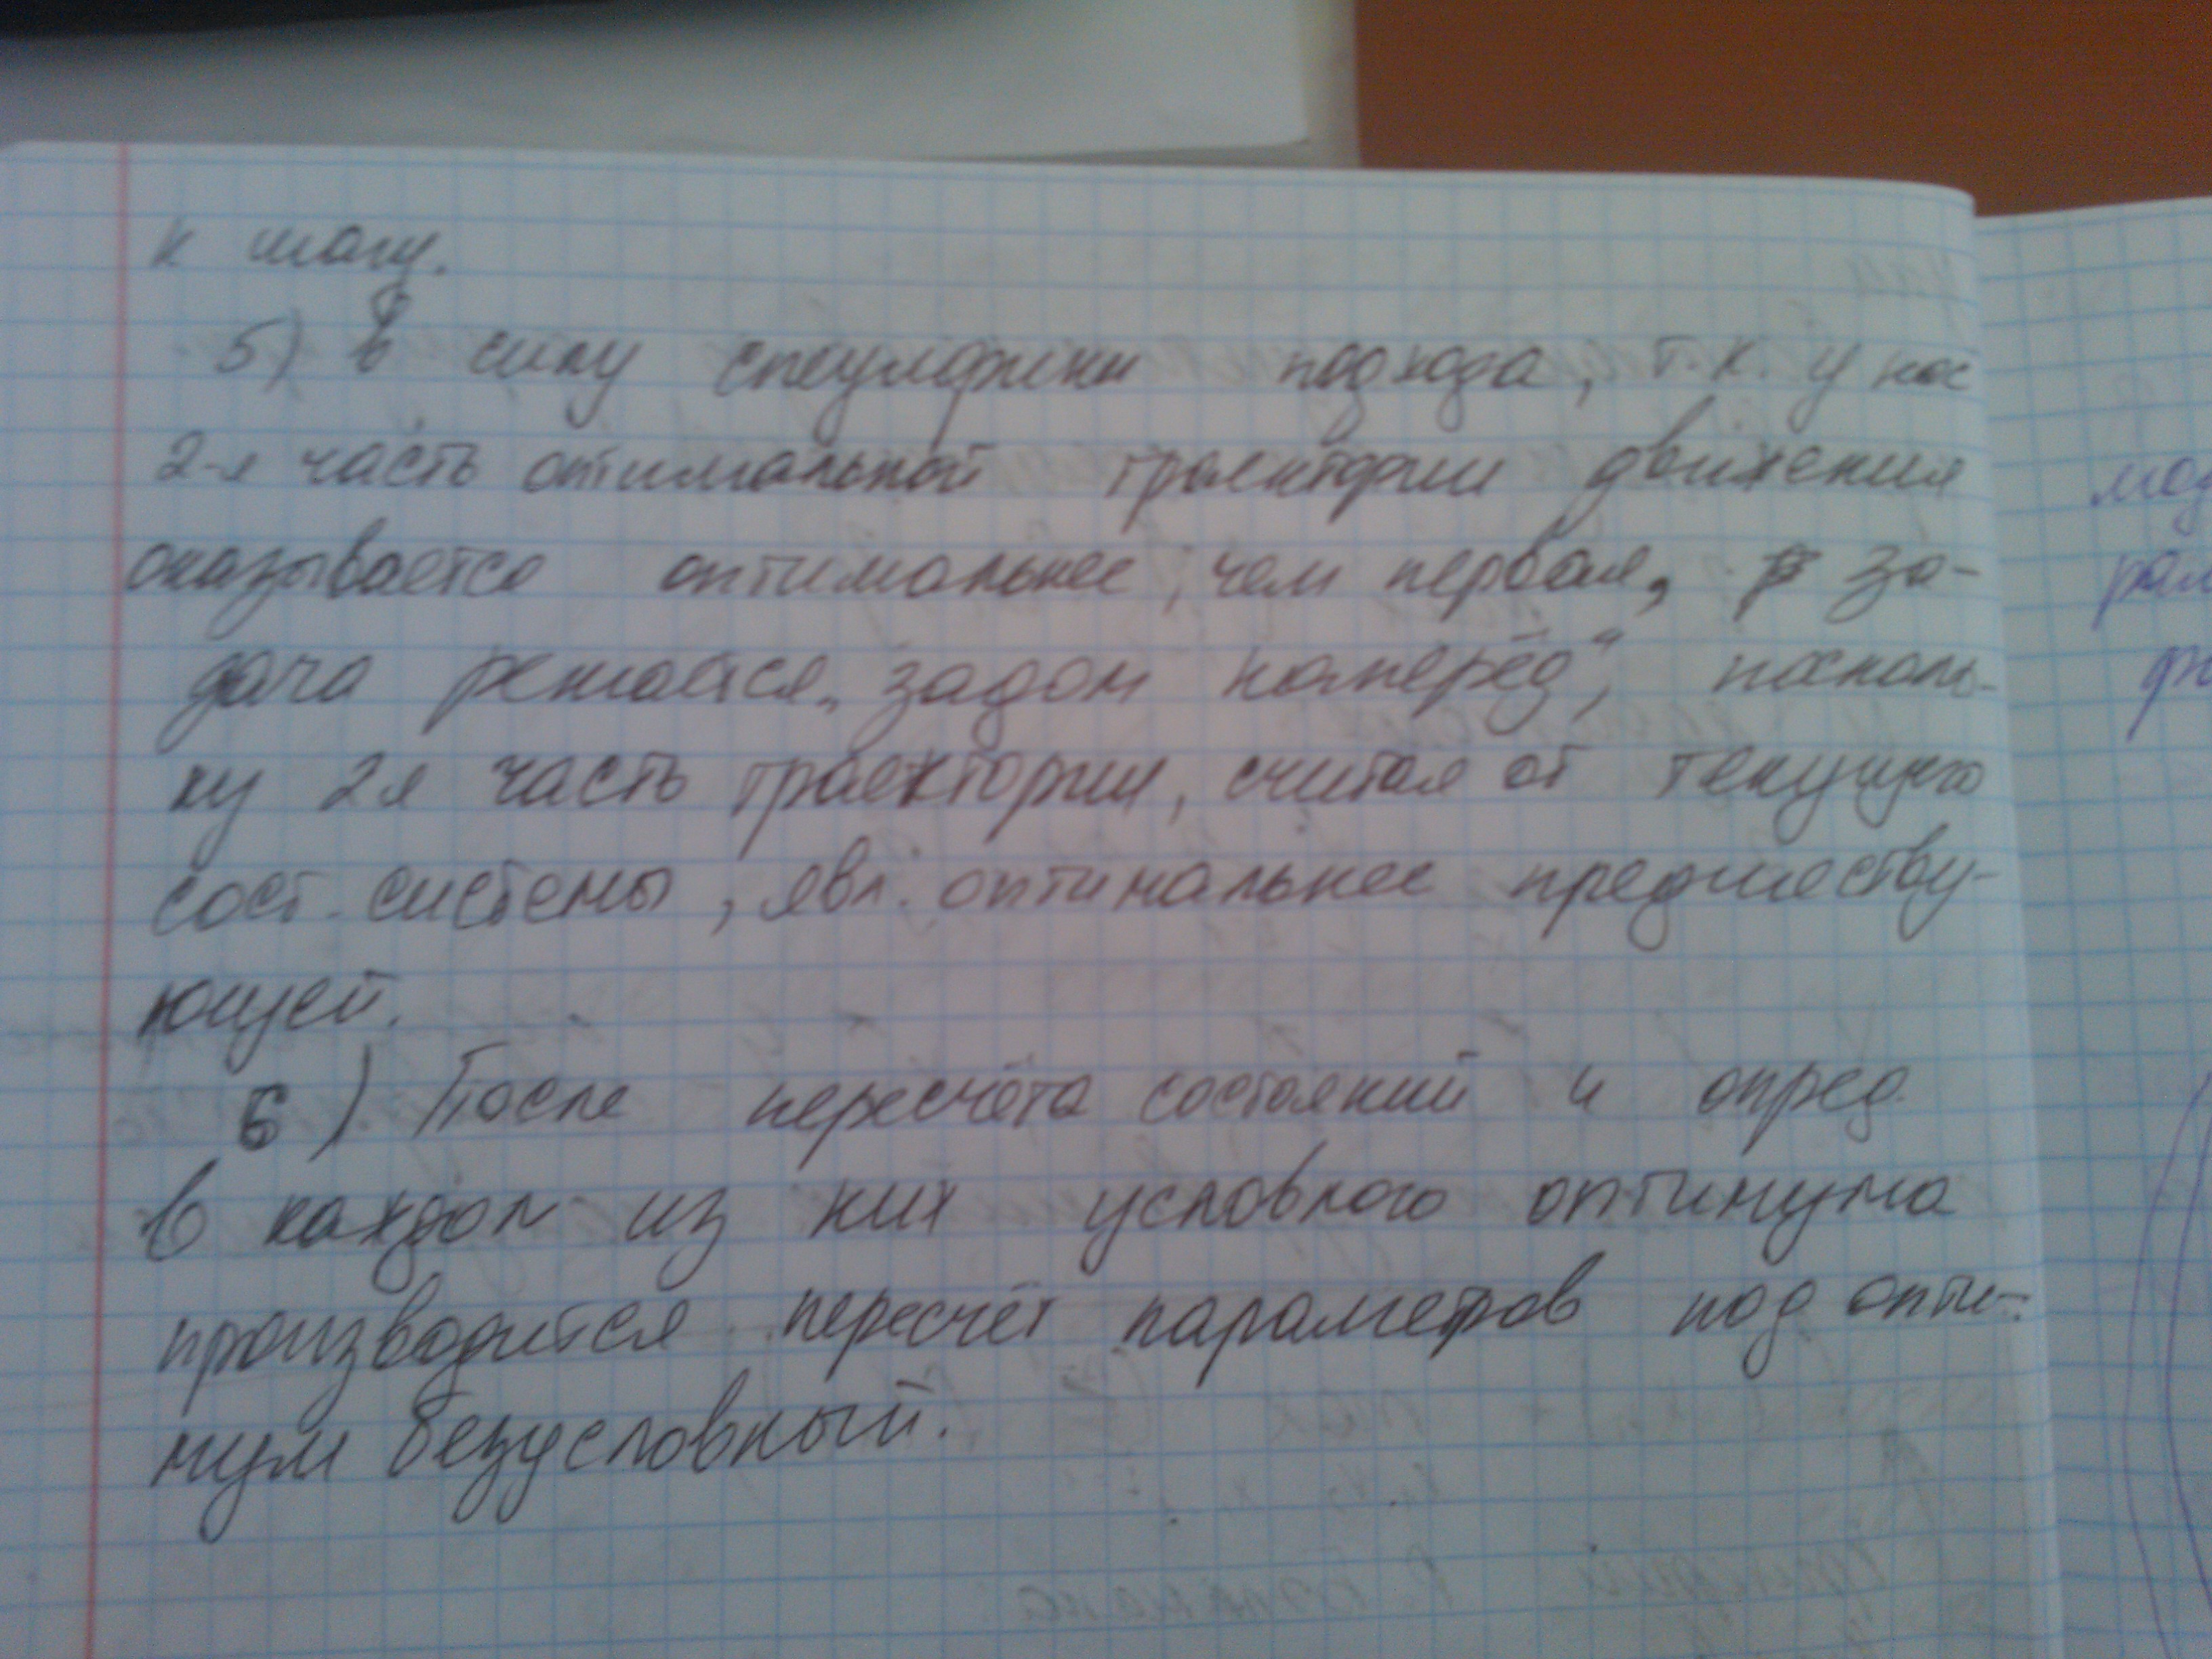 к шагу.
5) В силу специфики подхода, т.к. у нас
2-я часть оптимальной траектории движения
оказывается оптимальнее, чем первая, за-
дача решается „задом наперёд“, посколь-
ку 2я часть траектории, считая от текущего
сост. системы, явл. оптимальнее предшеству-
ющей.
6) После пересчёта состояний и опред.
в каждом из них условного оптимума
производится пересчёт параметров под опти-
мум безусловный.